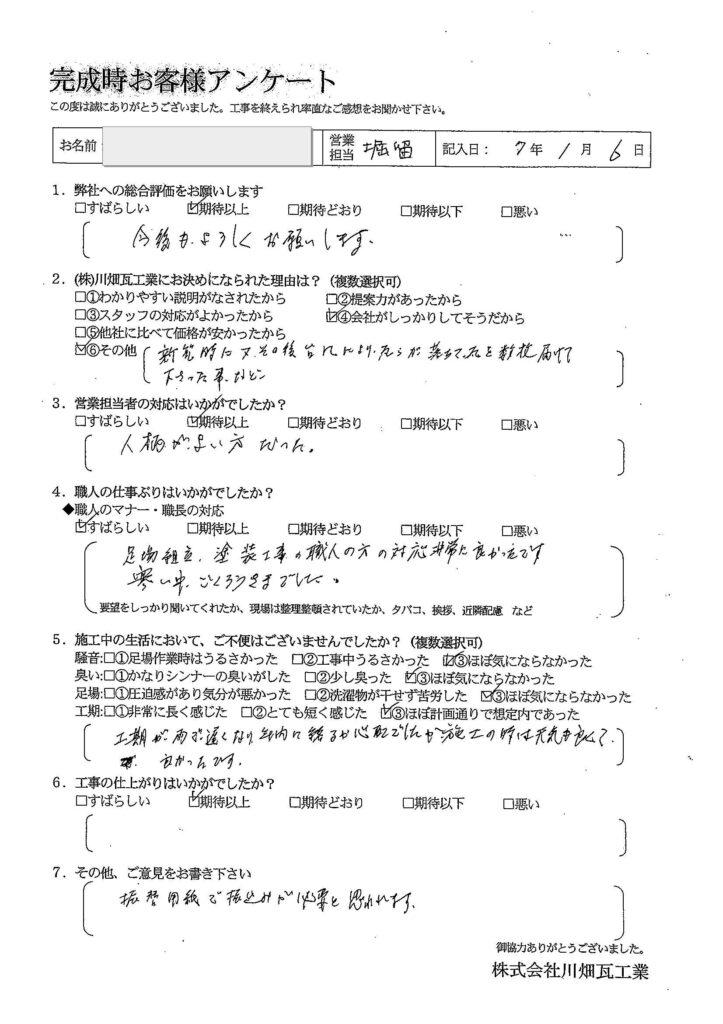 完成時お客様アンケート
この度は誠にありがとうございました。工事を終えられ率直なご感想をお聞かせ下さい。
お名前 営業担当 堀留 記入日： 7年 1月 6日
1．弊社への総合評価をお願いします
□すばらしい ☑期待以上 □期待どおり □期待以下 □悪い
今後もよろしくお願いします。
2．(株)川畑瓦工業にお決めになられた理由は？（複数選択可）
□①わかりやすい説明がなされたから □②提案力があったから
□③スタッフの対応がよかったから ☑④会社がしっかりしてそうだから
□⑤他社に比べて価格が安かったから
☑⑥その他 新築時に又その後台風により、かわらが落ちていたのを数枚届けて
下さった事など
3．営業担当者の対応はいかがでしたか？
□すばらしい ☑期待以上 □期待どおり □期待以下 □悪い
人柄がよい方だった。
4．職人の仕事ぶりはいかがでしたか？
◆職人のマナー・職長の対応
☑すばらしい □期待以上 □期待どおり □期待以下 □悪い
足場組立、塗装工事の職人の方の対応非常に良かったです
寒い中、ごくろうさまでした。
要望をしっかり聞いてくれたか、現場は整理整頓されていたか、タバコ、挨拶、近隣配慮 など
5．施工中の生活において、ご不便はございませんでしたか？（複数選択可）
騒音:□①足場作業時はうるさかった □②工事中うるさかった ☑③ほぼ気にならなかった
臭い:□①かなりシンナーの臭いがした □②少し臭った ☑③ほぼ気にならなかった
足場:□①圧迫感があり気分が悪かった □②洗濯物が干せず苦労した ☑③ほぼ気にならなかった
工期:□①非常に長く感じた □②とても短く感じた ☑③ほぼ計画通りで想定内であった
工期が雨で遅くなり年内に終るか心配でしたが施工の時は天気も良くて、
良かったです。
6．工事の仕上がりはいかがでしたか？
□すばらしい ☑期待以上 □期待どおり □期待以下 □悪い
7．その他、ご意見をお書き下さい
振替用紙で振込みが必要と思われます。
御協力ありがとうございました。
株式会社川畑瓦工業